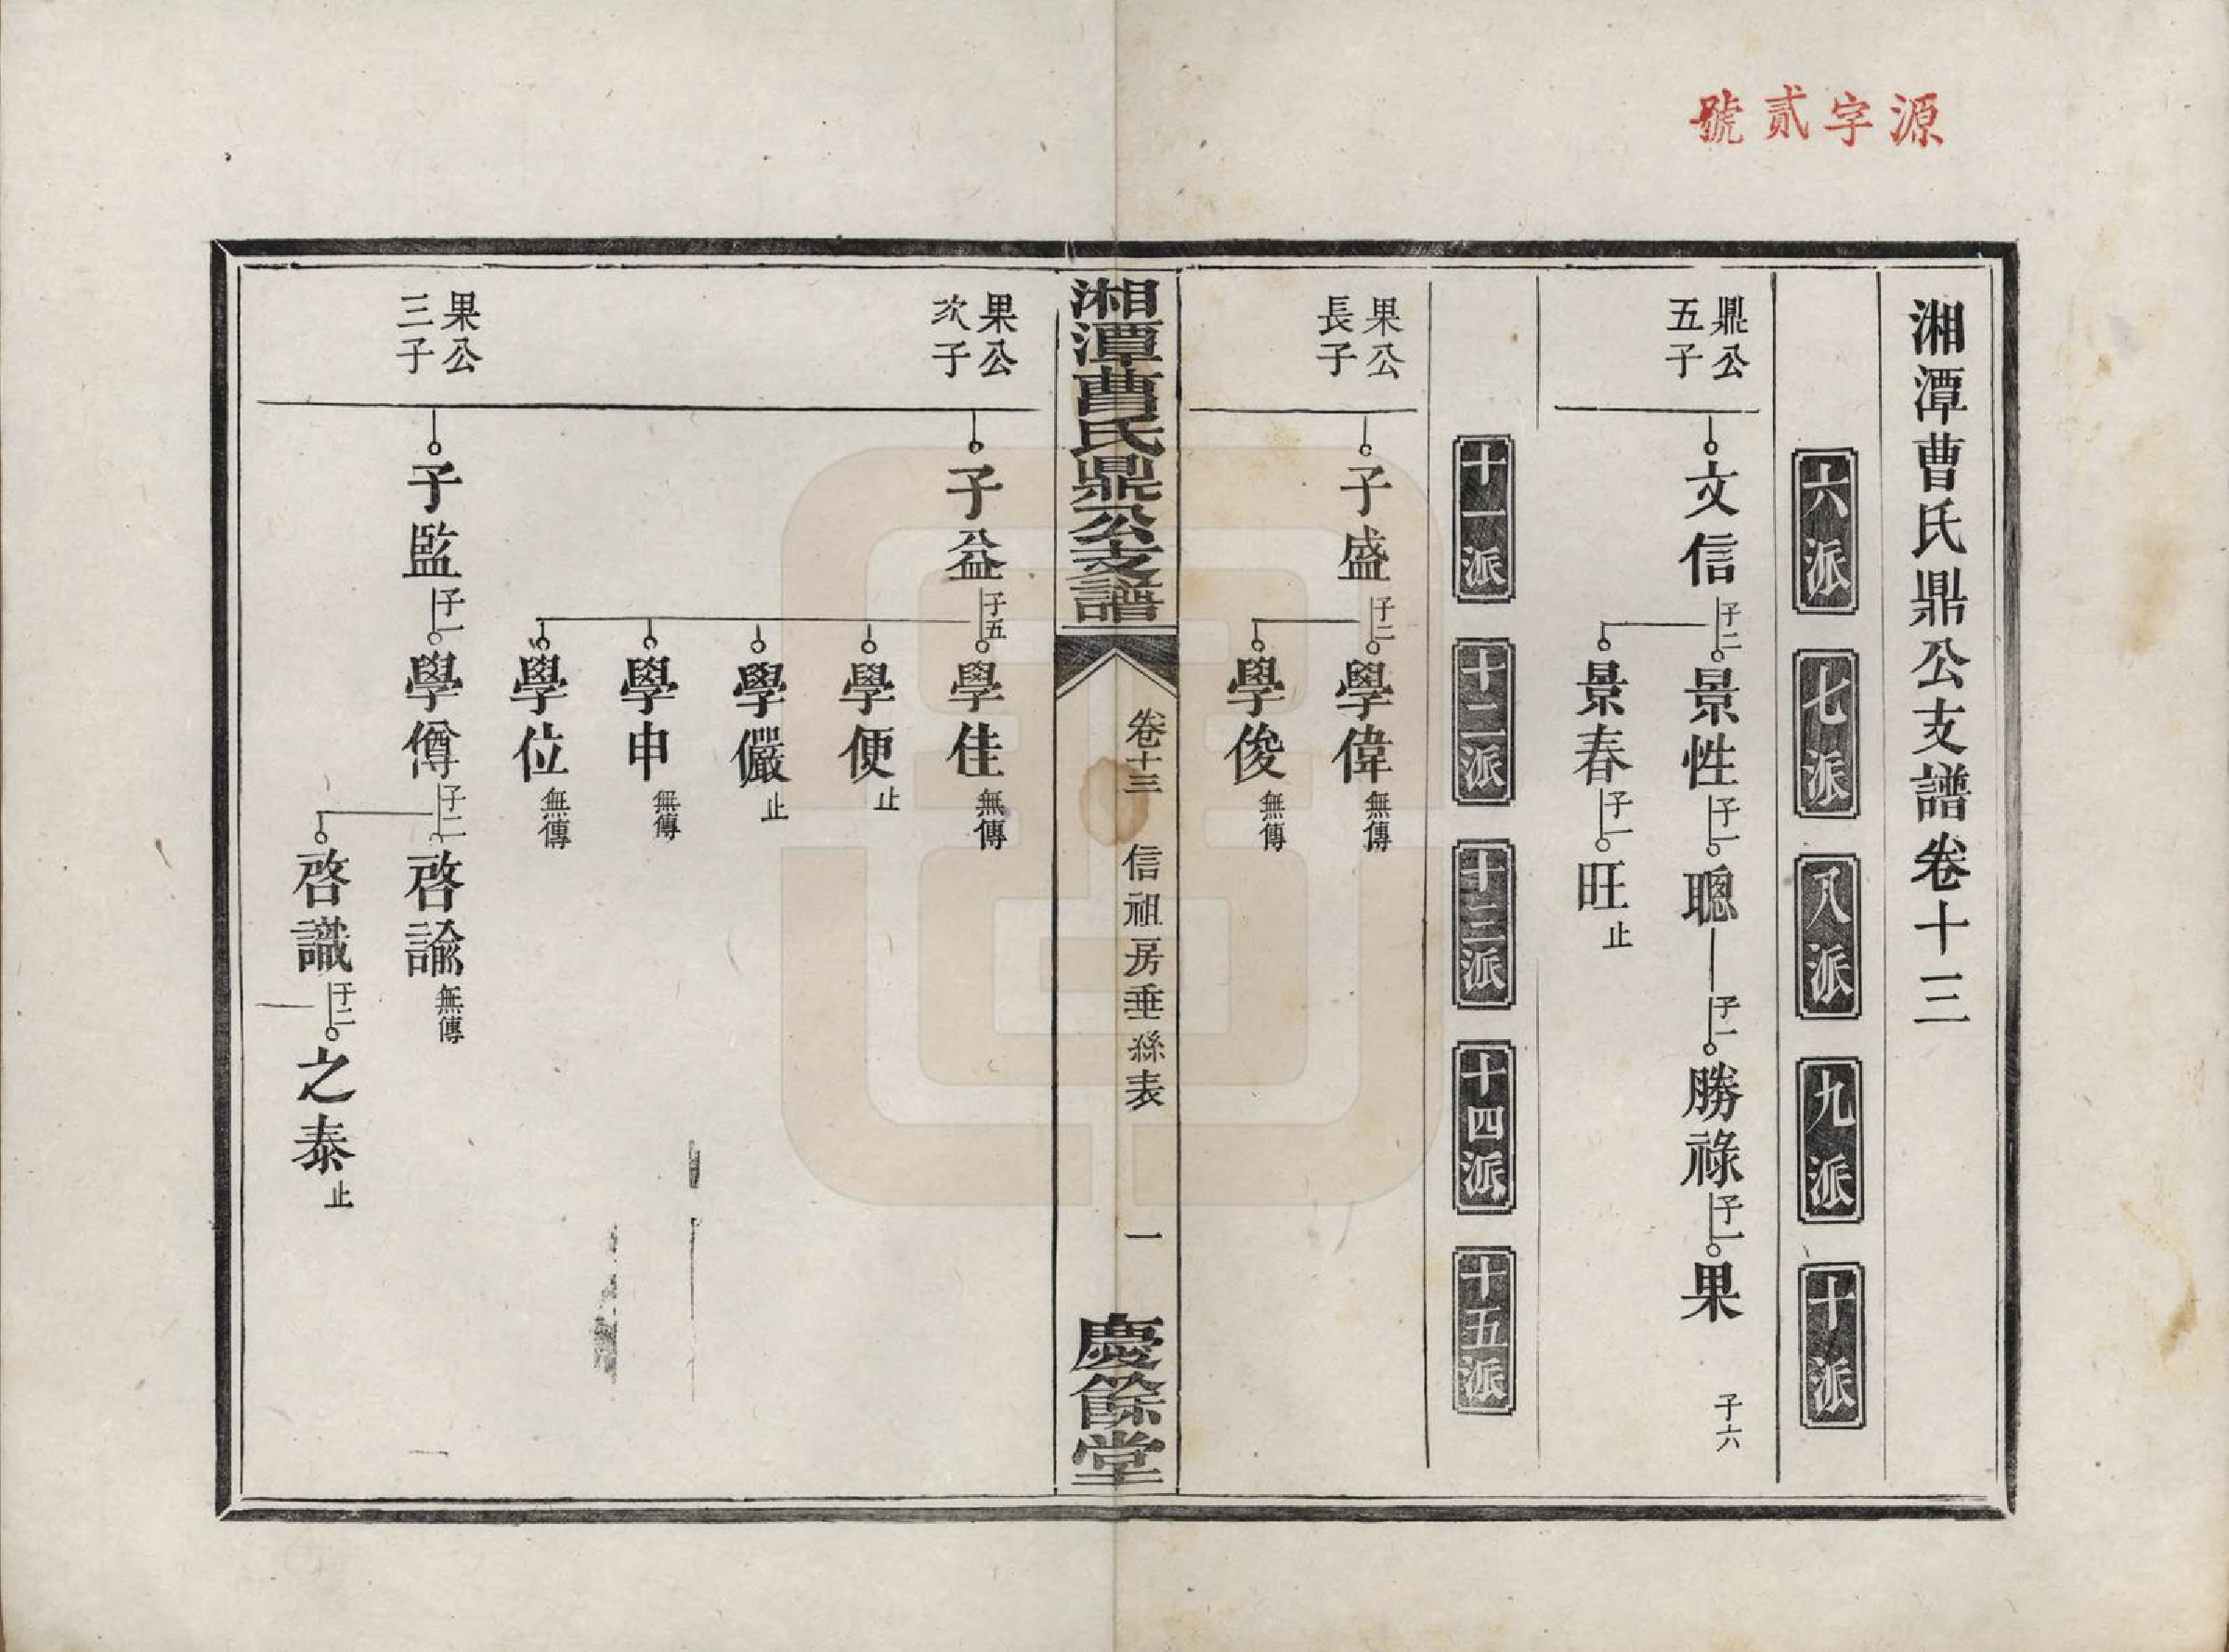 源字貳號
湘潭曹氏鼎公支譜卷十三
六派 七派 八派 九派 十派
鼎公
五子
文信 子二 景性 子一 聰 子一 勝祿 子一 果 子六
景春 子一 旺 止
十一派 十二派 十三派 十四派 十五派
果公
長子
子盛 子二 學偉 無傳
學俊 無傳
湘潭曹氏鼎公支譜
卷十三 信祖房垂絲表 一
慶餘堂
果公
次子
子益 子五 學佳 無傳
學便 止
學儼 止
學申 無傳
學位 無傳
果公
三子
子監 子一 學僔 子二 啓諭 無傳
啓識 子二 之泰 止